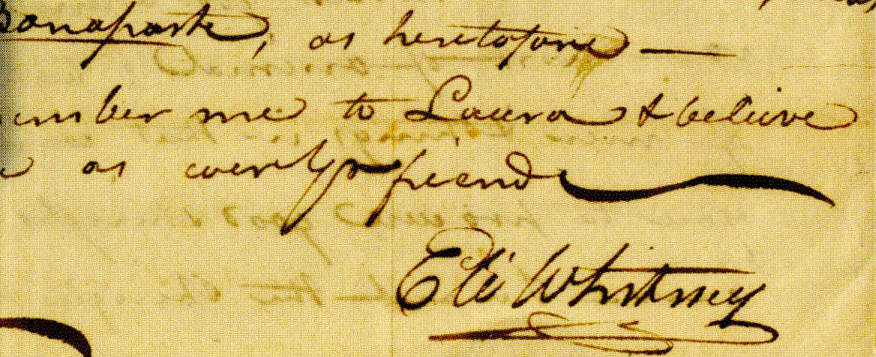 Bonaparte, as heretofore —
ember me to Laura & believe
e as ever Yr friend
Eli Whitney